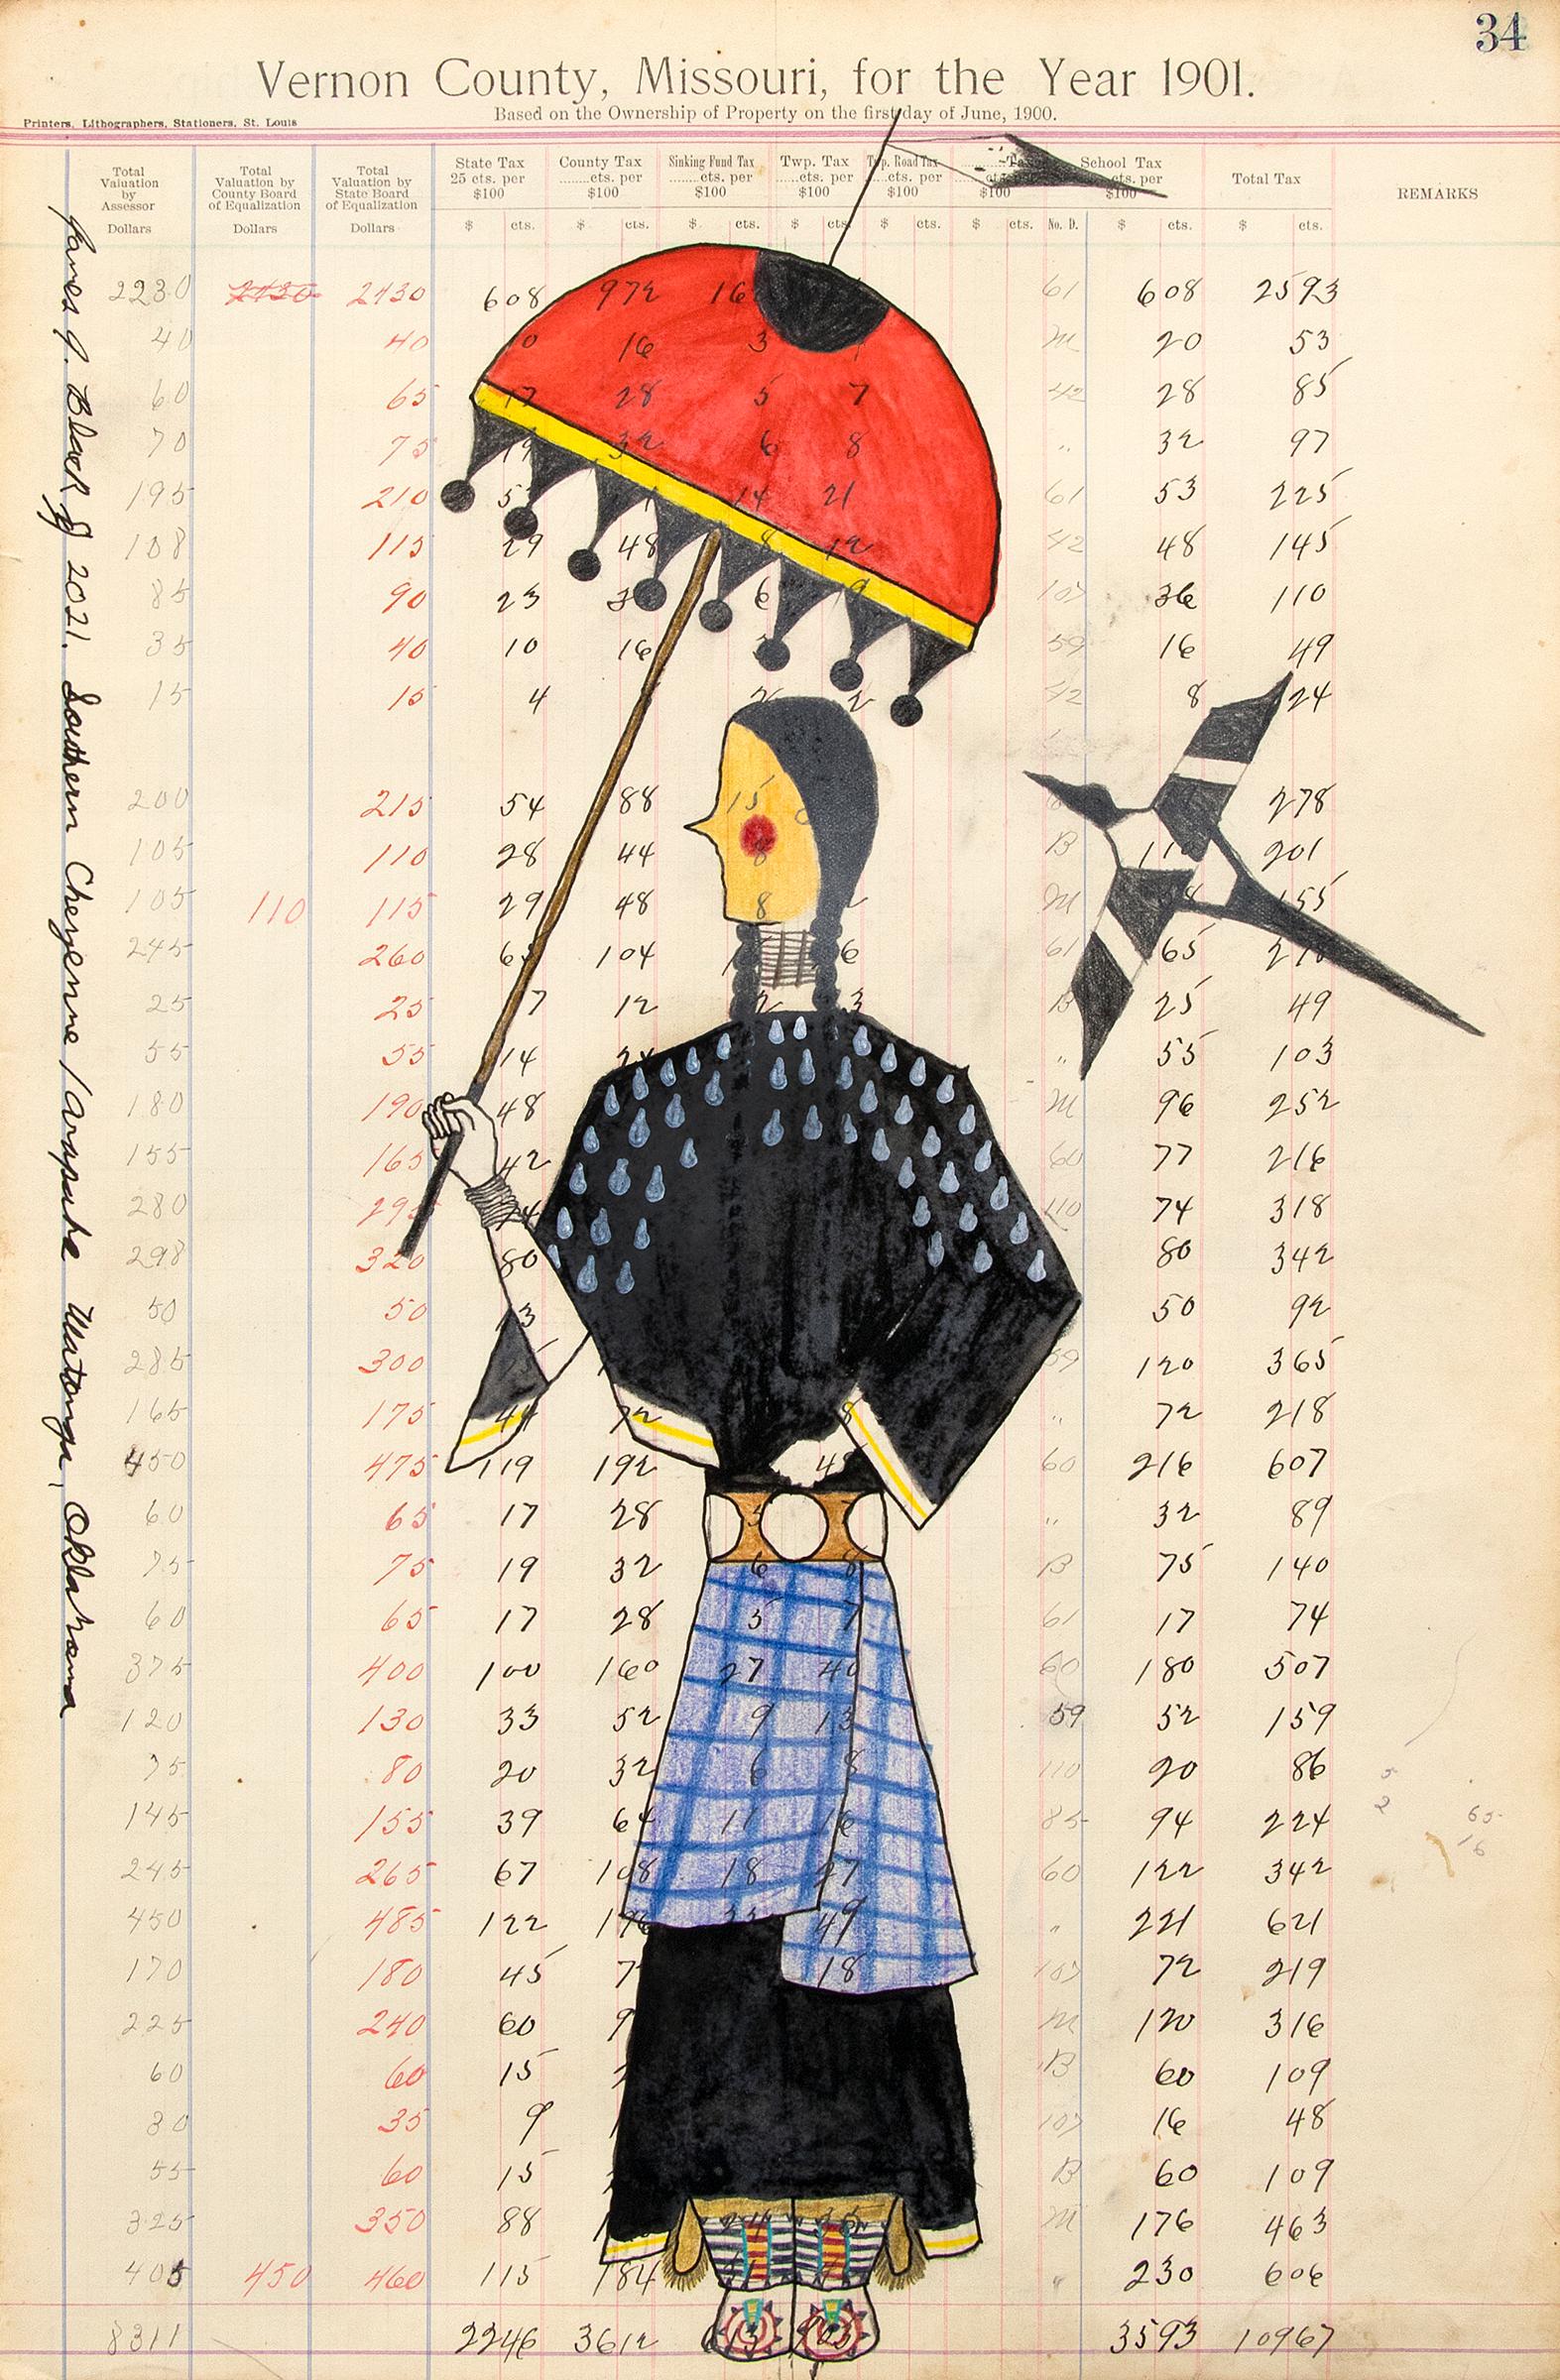 34
Vernon County, Missouri, for the Year 1901.
Based on the Ownership of Property on the first day of June, 1900.
Printers, Lithographers, Stationers, St. Louis
Total Valuation by Assessor Dollars
Total Valuation by County Board of Equalization Dollars
Total Valuation by State Board of Equalization Dollars
State Tax 25 cts. per $100 $ cts.
County Tax ........cts. per $100 $ cts.
Sinking Fund Tax ........cts. per $100 $ cts.
Twp. Tax ....cts. per $100 $ cts.
Twp. Road Tax ....cts. per $100 $ cts.
Tax cts. per $100 $ cts.
No. D.
School Tax cts. per $100 $ cts.
Total Tax $ cts.
REMARKS
James J. Black Jr 2021. Southern Cheyenne / Arapaho Watonga, Oklahoma
2230 2430 2430 608 972 16 61 608 2593
40 40 0 16 3 M 20 53
60 65 17 28 5 7 42 28 85
70 75 19 32 6 8 " 32 97
195 210 14 21 61 53 225
108 115 29 48 8 12 42 48 145
85 90 23 6 9 107 36 110
35 40 10 16 59 16 49
15 15 4 2 2 42 8 24
200 215 54 88 15 278
105 110 28 44 8 B 201
105 110 115 29 48 8 M 155
245 260 65 104 6 61 65
25 25 7 12 2 3 B 25 49
55 55 14 " 55 103
180 190 48 M 96 252
155 165 42 60 77 216
280 295 74 110 74 318
298 320 80 80 342
50 50 13 50 92
285 300 59 120 365
165 175 44 72 8 " 72 218
450 475 119 192 48 60 216 607
60 65 17 28 5 7 " 32 89
75 75 19 32 6 8 B 75 140
60 65 17 28 5 7 61 17 74
375 400 100 160 27 40 60 180 507
120 130 33 52 9 13 59 52 159
75 80 20 32 6 8 110 20 86
145 155 39 64 11 16 85 94 224
245 265 67 108 18 27 60 122 342
450 485 122 196 33 49 " 221 621
170 180 45 7 18 107 72 219
225 240 60 9 M 120 316
60 60 15 B 60 109
30 35 9 107 16 48
55 60 15 B 60 109
325 350 88 M 176 463
405 450 460 115 184 " 230 606
8311 2246 3612 3593 10967